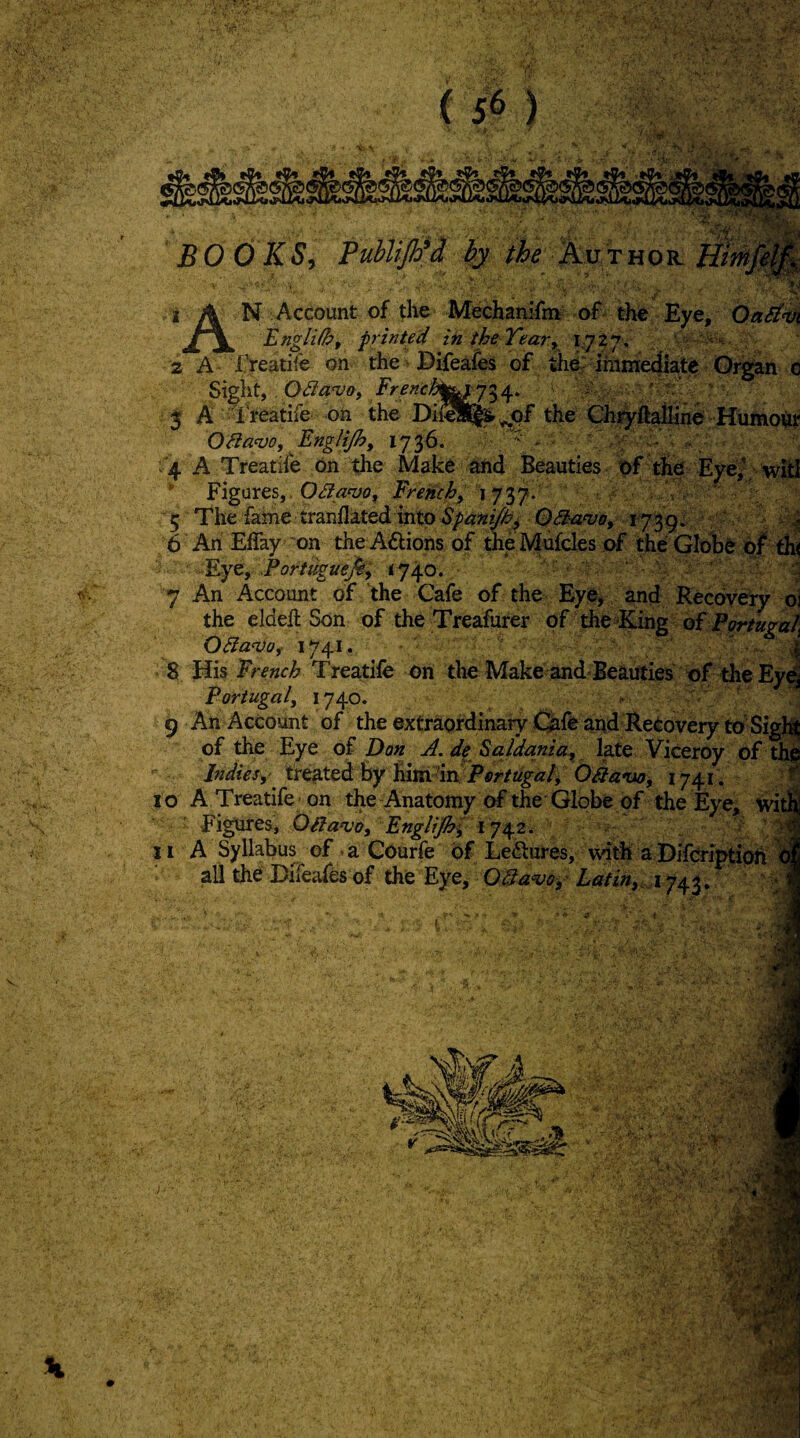 ( 56 )
BOOKS, Publiſh'd by the AUTHOR Himſelf.
1 AN Account of the Mechaniſm of the Eye, Octavo
Engliſh, printed in the Year, 1727.
2 A Treatiſe on the Diſeaſes of the immediate Organ o
Sight, Octavo, French, 1734.
3 A Treatiſe on the Diſeaſes of the Chryſtalline Humour
Octavo, Engliſh, 1736.
4 A Treatiſe on the Make and Beauties of the Eye, wit
Figures, Octavo, French, 1737.
5 The ſame tranſlated into Spaniſh, Octavo, 1739.
6 An Eſſay on the Actions of the Muſcles of the Globe of the
Eye, Portugueſe, 1740.
7 An Account of the Caſe of the Eye, and Recovery o
the eldeſt Son of the Treaſurer of the King of Portugal
Octavo, 1741.
8 His French Treatiſe on the Make and Beauties of the Eye,
Portugal, 1740.
9 An Account of the extraordinary Caſe and Recovery to Sight
of the Eye of Don A. de Saldania, late Viceroy of the
Indies, treated by him in Portugal, Octavo, 1741.
10 A Treatiſe on the Anatomy of the Globe of the Eye, with
Figures, Octavo, Engliſh, 1742.
11 A Syllabus of a Courſe of Lectures, with a Diſcription of
all the Diſeaſes of the Eye, Octavo, Latin, 1743.